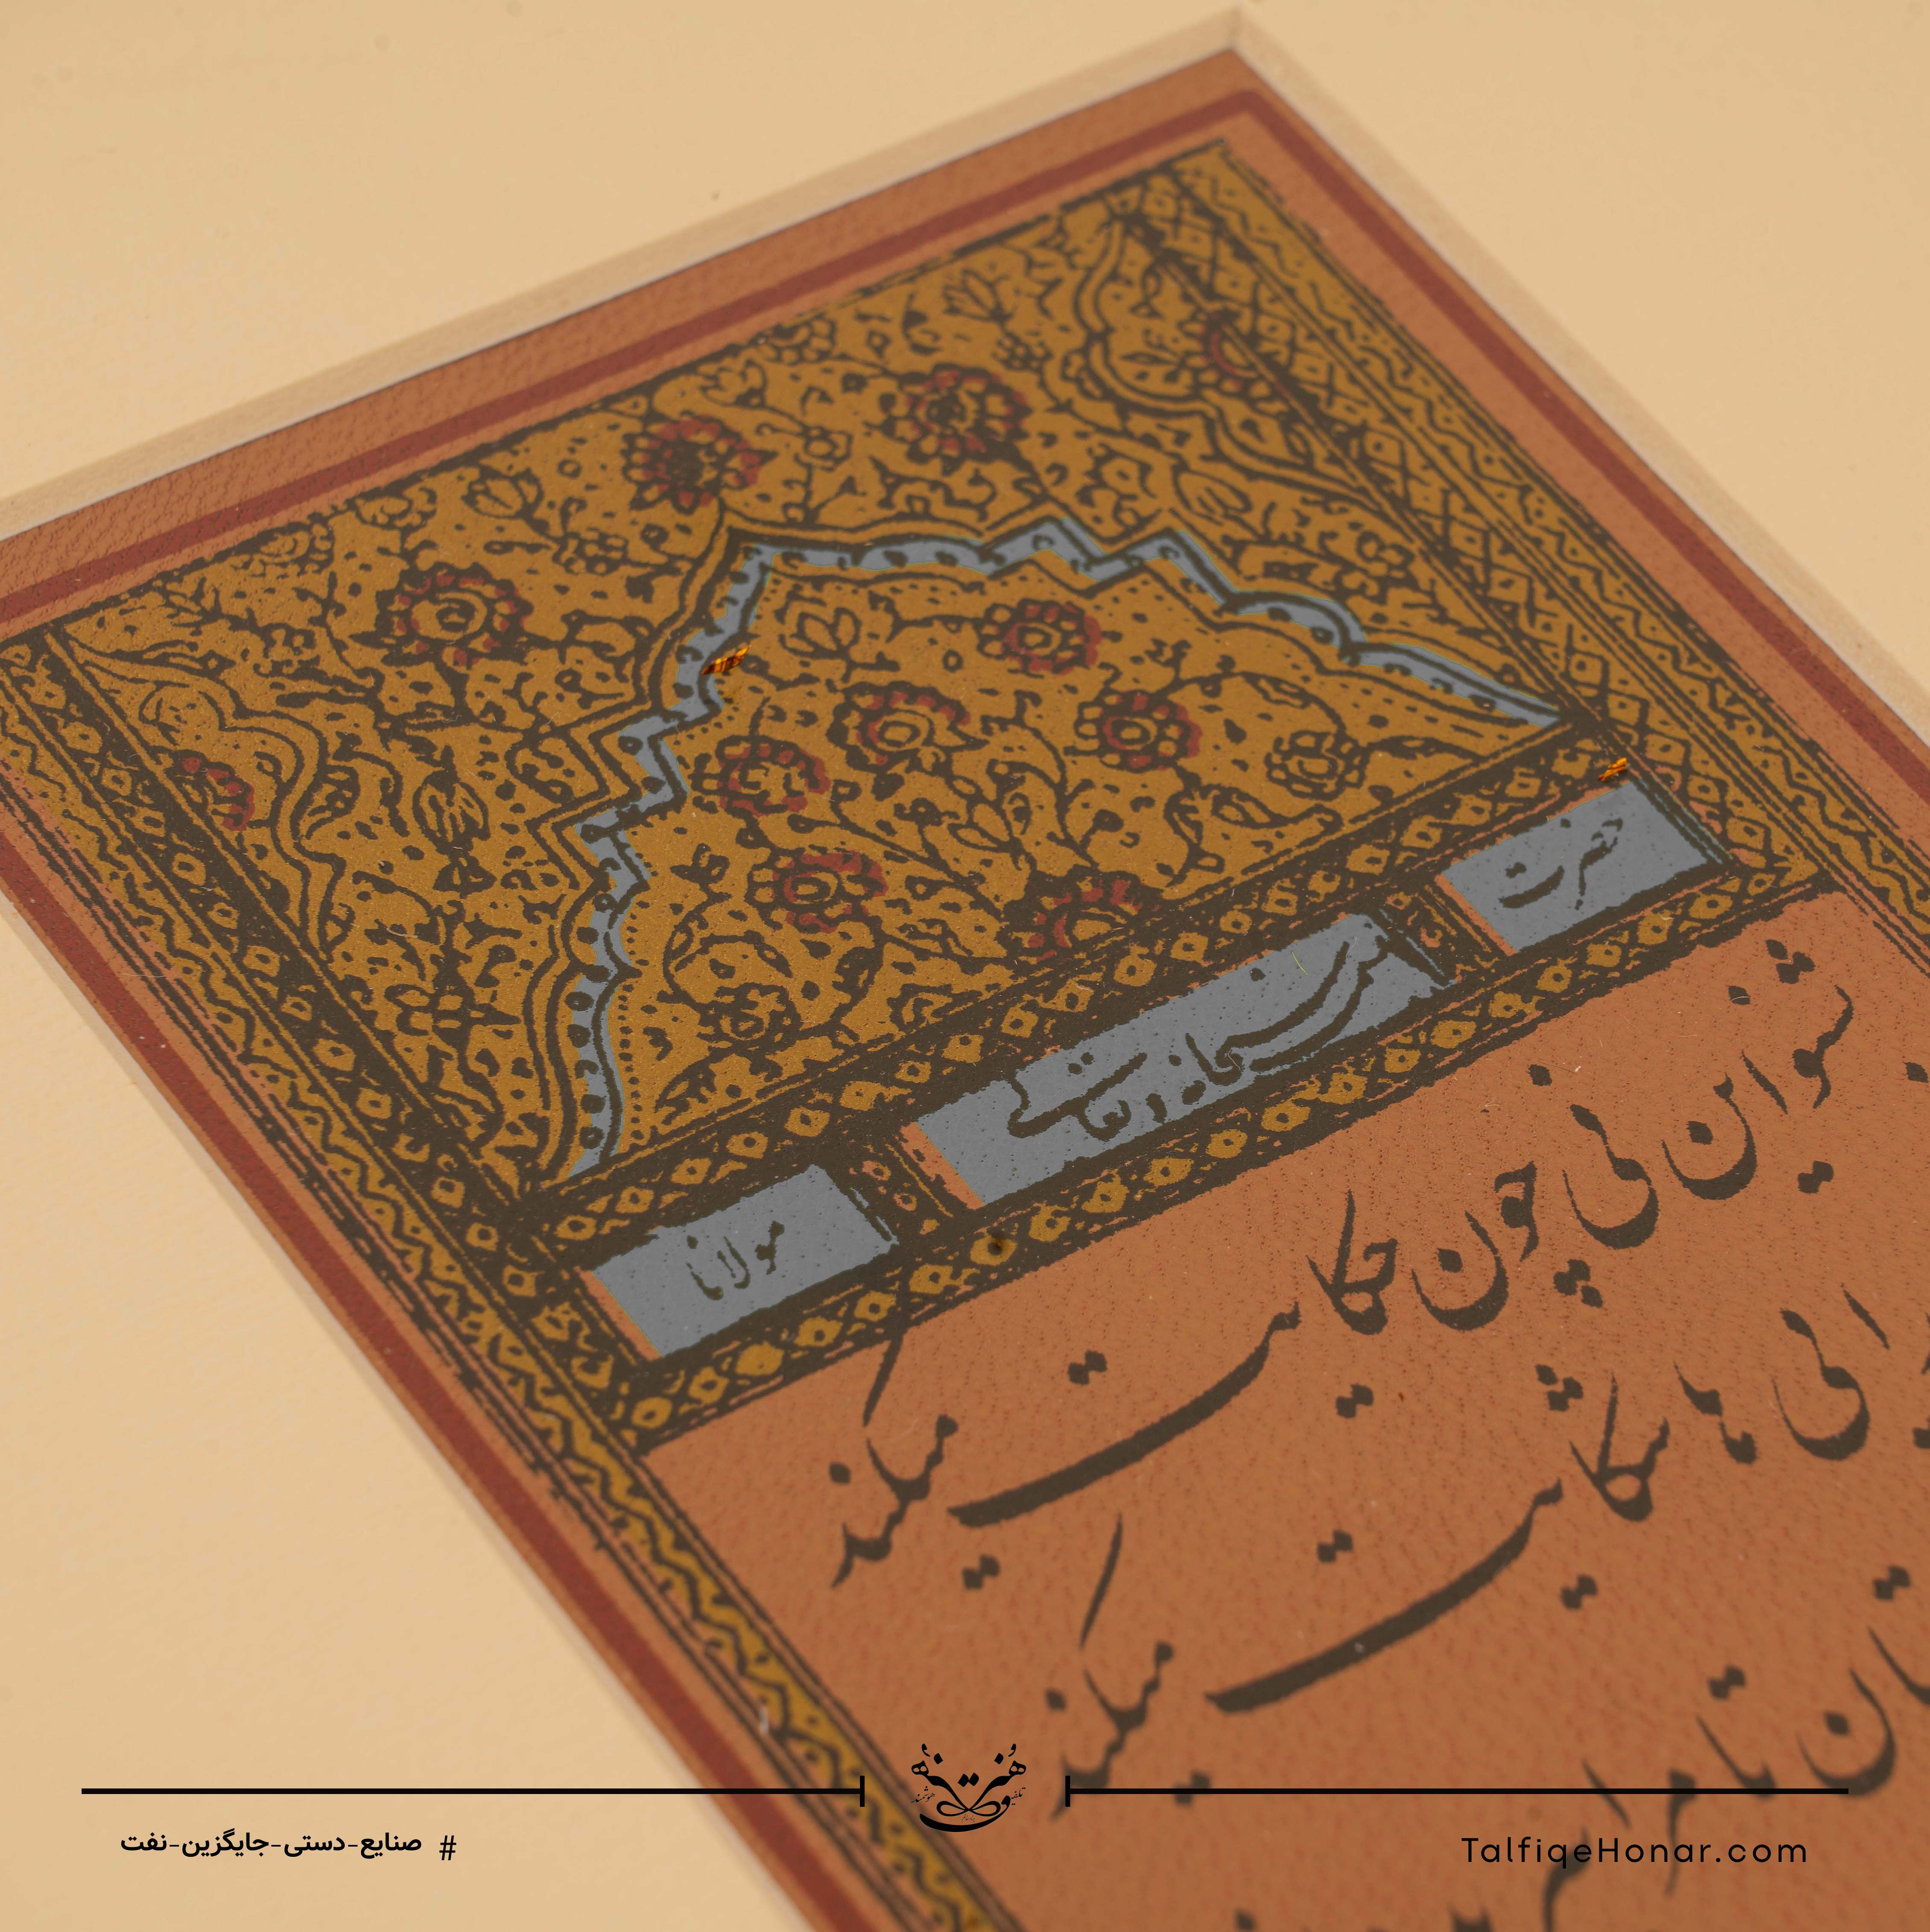 حضرت
مولانا
بشنو این نی چون حکایت میکند
ها شکایت میکند
تا مرا
# صنایع-دستی-جایگزین-نفت
TalfiqeHonar.com